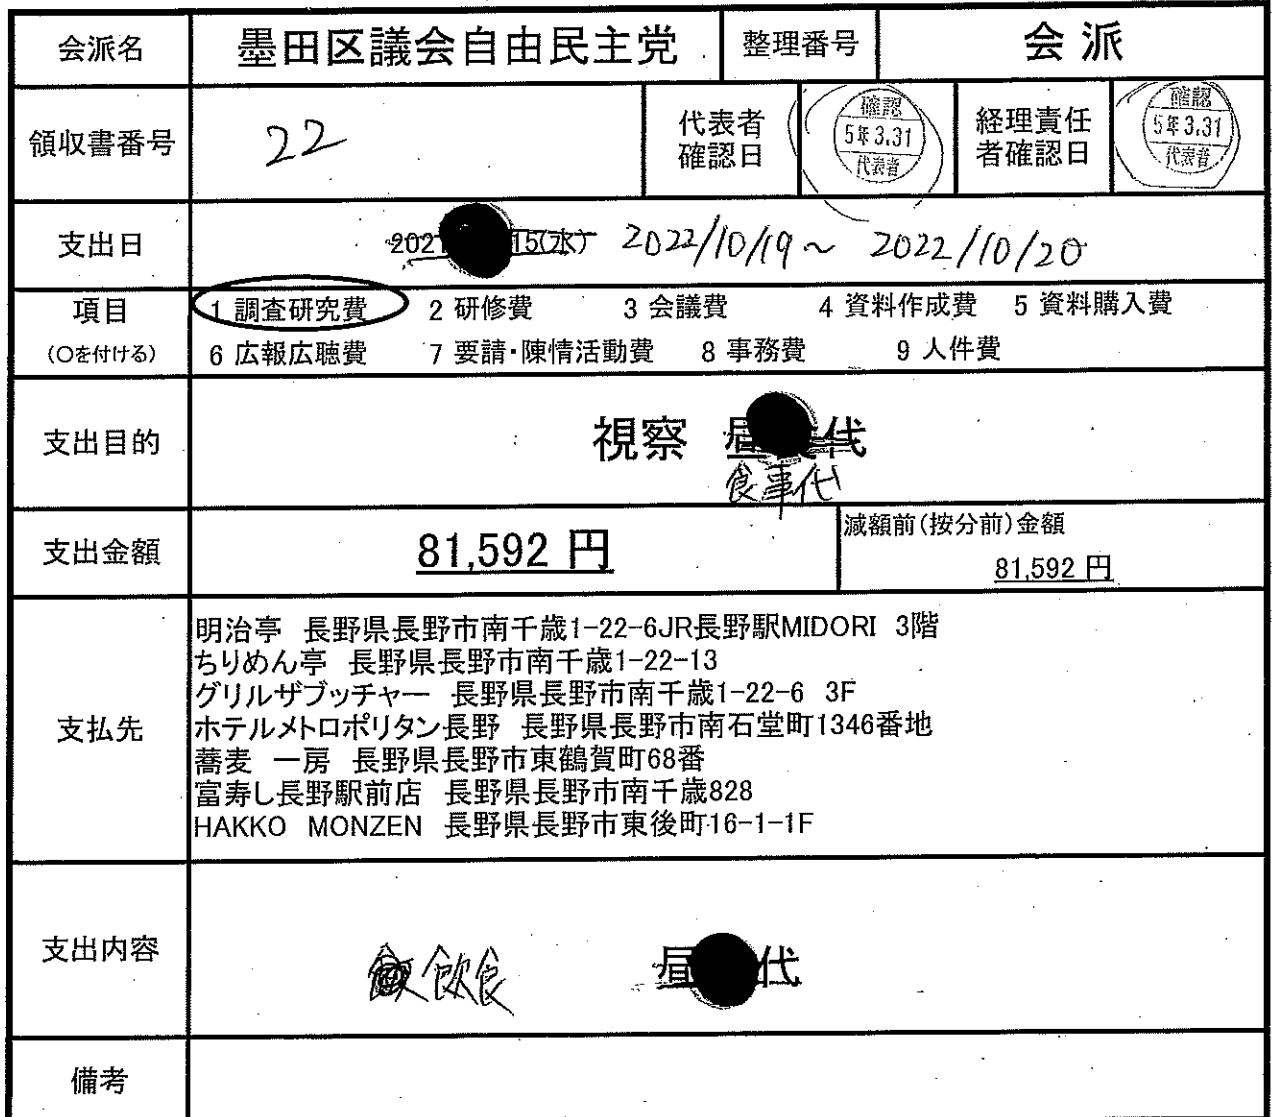 会派名 墨田区議会自由民主党 整理番号 会派
領収書番号 22 代表者確認日 確認 5年3.31 代表者 経理責任者確認日 確認 5年3.31 代表者
支出日 2021 15(水) 2022/10/19～2022/10/20
項目 1 調査研究費 2 研修費 3 会議費 4 資料作成費 5 資料購入費
(○を付ける) 6 広報広聴費 7 要請・陳情活動費 8 事務費 9 人件費
支出目的 視察 昼 代
食事代
支出金額 81,592 円 減額前(按分前)金額
81,592 円
支払先
明治亭 長野県長野市南千歳1-22-6JR長野駅MIDORI 3階
ちりめん亭 長野県長野市南千歳1-22-13
グリルザブッチャー 長野県長野市南千歳1-22-6 3F
ホテルメトロポリタン長野 長野県長野市南石堂町1346番地
蕎麦 一房 長野県長野市東鶴賀町68番
富寿し長野駅前店 長野県長野市南千歳828
HAKKO MONZEN 長野県長野市東後町16-1-1F
支出内容 飲食 昼 代
備考